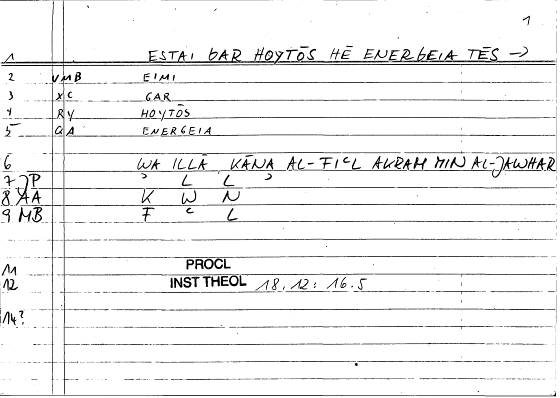 1
1 ESTAI GAR HOYTŌS HĒ ENERGEIA TĒS →
2 VMB EIMI
3 XC GAR
4 RY HOYTŌS
5 QA ENERGEIA
6 WA ILLĀ KĀNA AL-FIᶜL AKRAM MIN AL-JAWHAR
7 JP ʾ L L ʾ
8 AA K W N
9 MB F ᶜ L
11 PROCL
12 INST THEOL 18.12: 16.5
14?